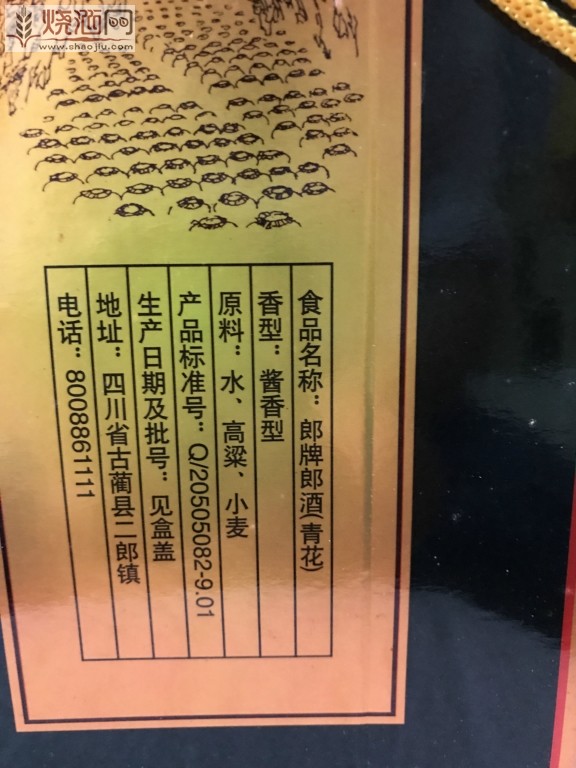 烧酒网
www.shaojiu.com
食品名称：郎牌郎酒(青花)
香型：酱香型
原料：水、高粱、小麦
产品标准号：Q/20505082-9.01
生产日期及批号：见盒盖
地址：四川省古蔺县二郎镇
电话：8008861111